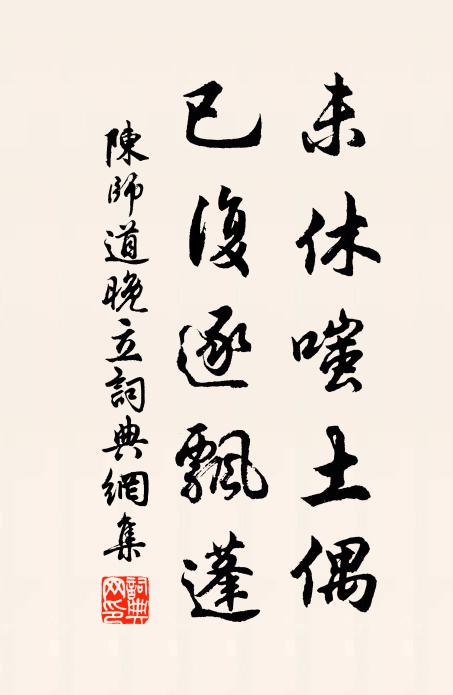 未休嗤土偶
已復逐飄蓬
陳師道晚立詞典網集
詞典网印